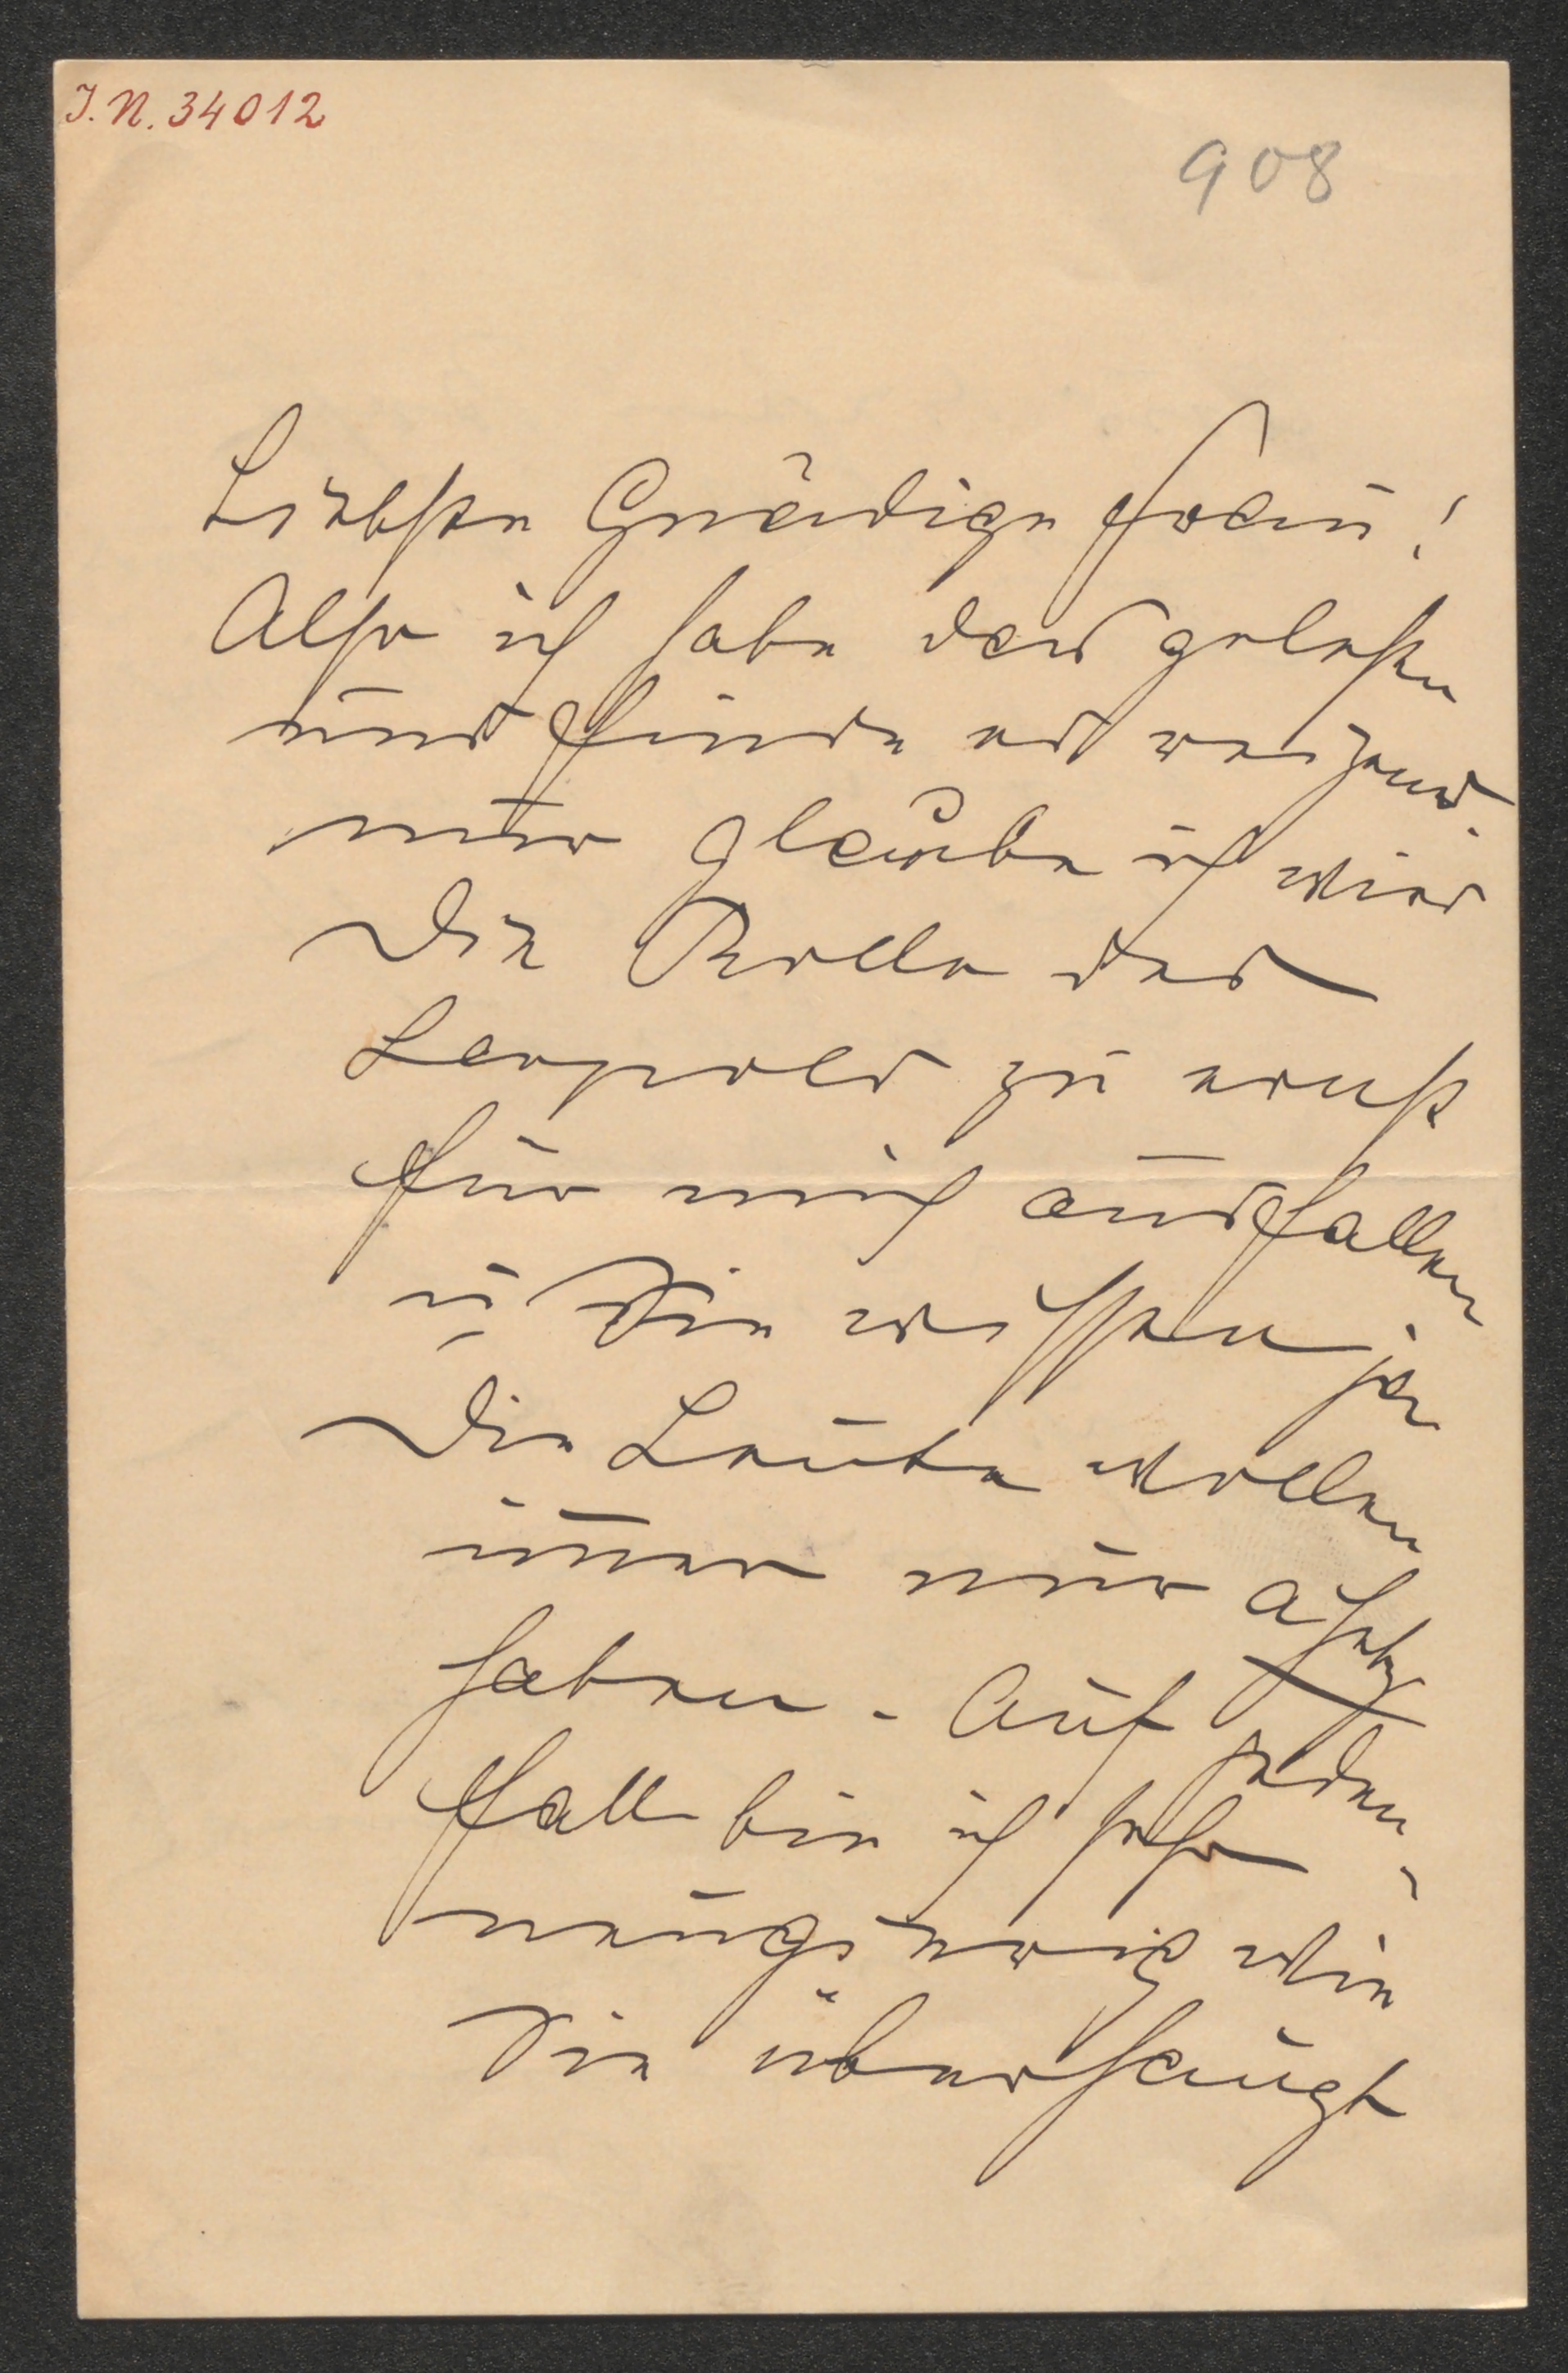 I. N. 34012
908
Liebste Gnädige Frau!
Also ich habe das gelesen
und finde es reizend.
nur glaube ich wird
die Rolle des
Leopold zu ernst
für mich ausfallen
u Sie wissen ja
die Leute wollen
im̄er nur
haben. Auf jeden
Fall bin ich sehr
neugierig wie
Sie überhaupt